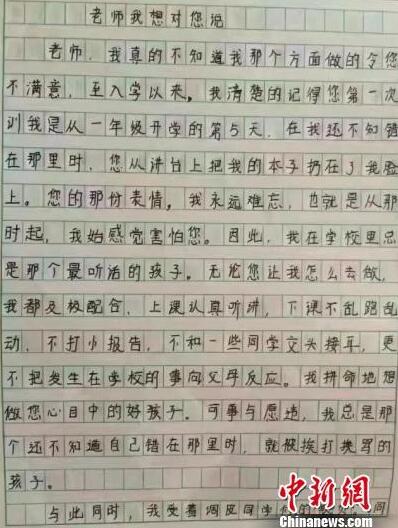 老师我想对您说
老师，我真的不知道我那个方面做的令您
不满意，至入学以来。我清楚的记得您第一次
训我是从一年级开学的第5天，在我还不知错
在那里时，您从讲台上把我的本子扔在了我脸
上。您的那份表情。我永远难忘，也就是从那
时起，我始感觉害怕您。因此，我在学校里总
是那个最听话的孩子。无论您让我怎么去做，
我都及极配合，上课认真听讲，下课不乱跑乱
动，不打小报告，不和一些同学交头接耳，更
不把发生在学校的事向父母反应。我拼命地想
做您心目中的好孩子。可事与愿违，我总是那
个还不知道自己错在那里时，就被挨打挨骂的
孩子。
与此同时，我受着调皮同学
中新网